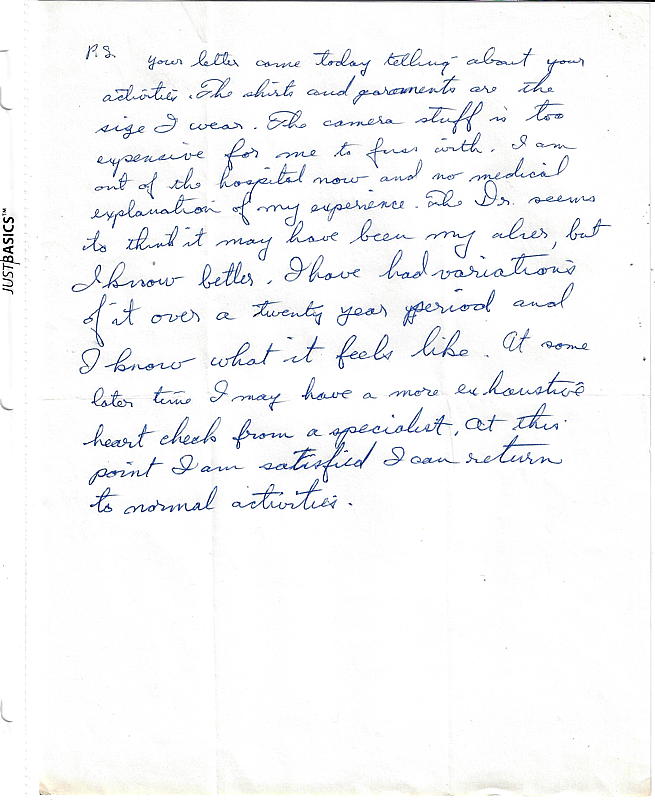 P.S. your letter came today telling about your
activities. The shirts and garments are the
size I wear. The camera stuff is too
expensive for me to fuss with. I am
out of the hospital now and no medical
explanation of my experience. The Dr. seems
to think it may have been my ulcer, but
I know better. I have had variations
of it over a twenty year period and
I know what it feels like. At some
later time I may have a more exhaustive
heart check from a specialist. At this
point I am satisfied I can return
to normal activities.
JUSTBASICS™